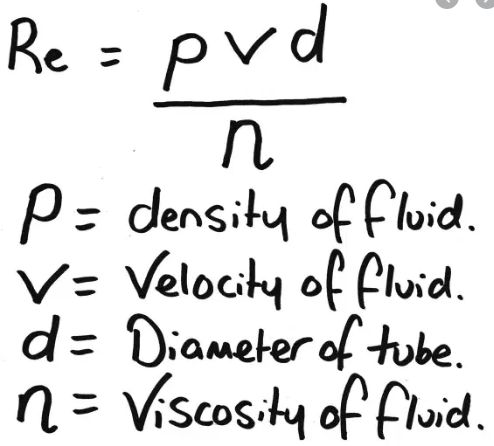 Re = ρvd
n
ρ = density of fluid.
v = Velocity of fluid.
d = Diameter of tube.
n = Viscosity of fluid.